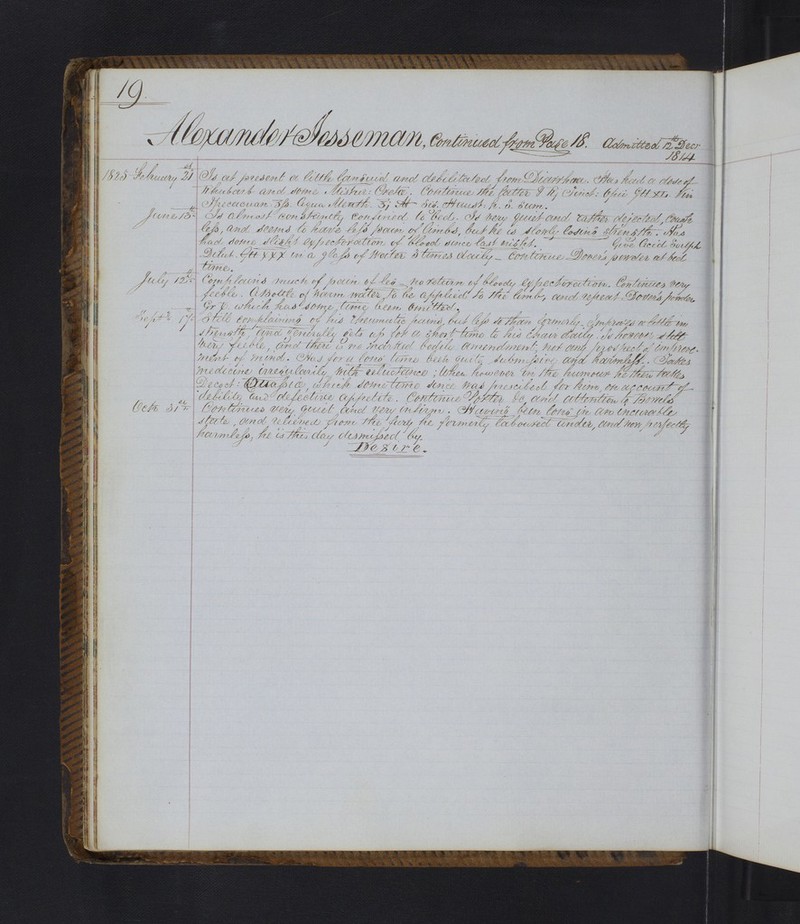 19.
Alexander Jesseman, Continued from Page 18. Admitted 12th Decr
1814
1825 February 21st Is at present a little languid and debilitated from Diarrhœa. Has had a dose of
Rhubarb and some Mistur: Cretæ. Continue the latter ℥ ij Tinct: Opii Gtt xx. Vin
Ipecacuan ʒſs. Aqua Menth. ℥j bis, Haust. h. s. sum.
June 15th Is almost constantly confined to bed. Is very quiet and rather dejected,
leſs, and seems to have leſs pain of limbs, but he is slowly losing strength. Has
had some slight expectoration of blood since last night. Acid Sulph
Dilut. Gtt xxx in a glaſs of Water 3 times daily – Continue Dover's powder at bed
time.
July 12th Complains much of pain of leg – no return of bloody expectoration. Continues very
feeble. A Bottle of warm water, to be applied to the limb, and repeat Dover's powder
which has some time been omitted.
Septr 17th Still complaining of his rheumatic pains, but leſs so than formerly. Improves a little in
strength, and generally gets up for a short time to his chair daily. Is however still
very feeble, and there is no marked bodily amendment, nor any prospect of improve-
ment of mind. Has for a long time been quite submissive and harmleſs. Takes
medicine irregularily with reluctance; When however in the humour he then takes
Decoct: Quaſsia, which some time since was prescribed for him, on account of
debility and defective appetite. Continue Porter &c, and attention to Bowels
Octr 31st Continues very quiet, and very infirm. Having been long in an incurable
state, and relieved from the fury he formerly laboured under, and now perfectly
harmleſs, he is this day dismiſsed by.
Desire.